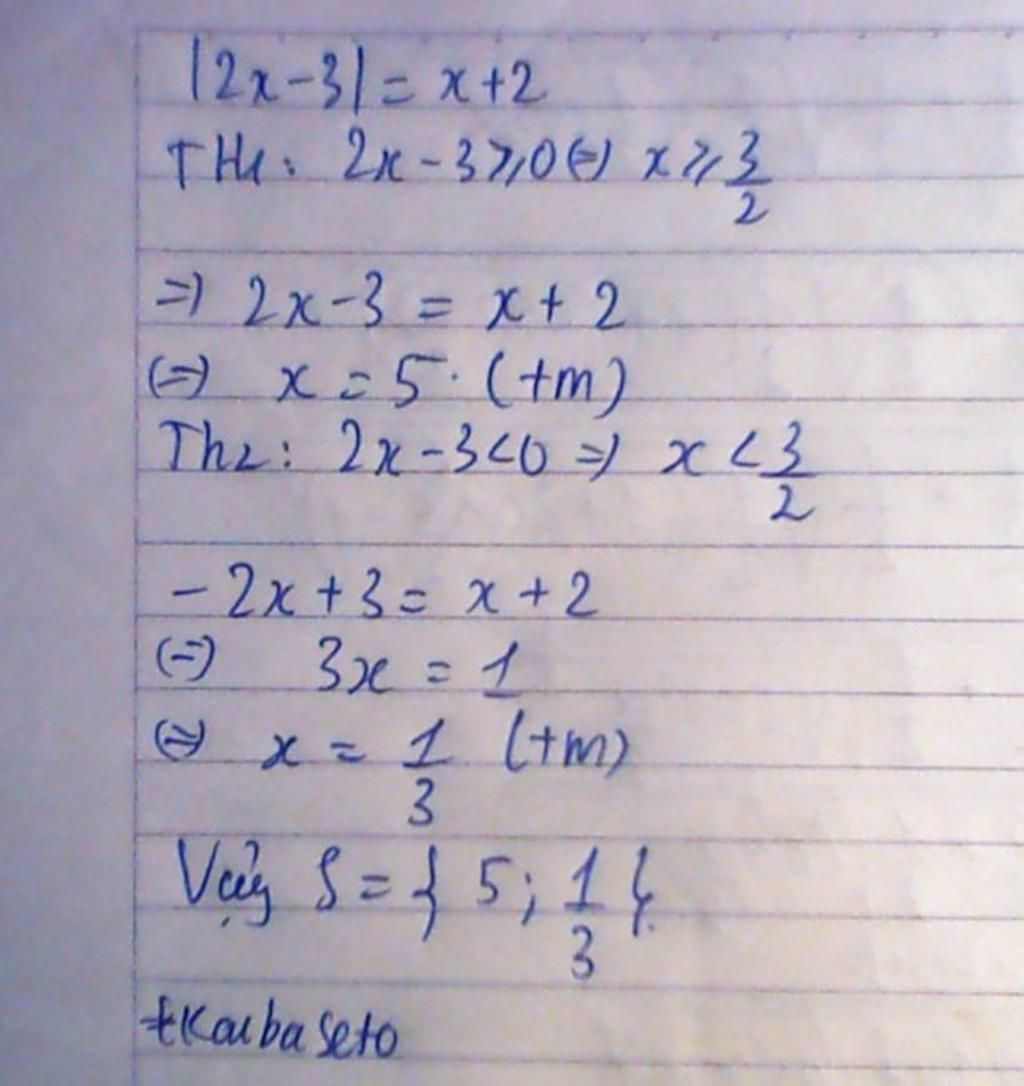 |2x-3| = x+2
TH1: 2x-3 ≥ 0 (=) x ≥ 3/2
=) 2x-3 = x+2
(=) x = 5. (tm)
Th2: 2x-3<0 =) x < 3/2
-2x+3 = x+2
(=) 3x = 1
(=) x = 1/3 (tm)
Vậy S = { 5; 1/3 }.
tKaibaSeto